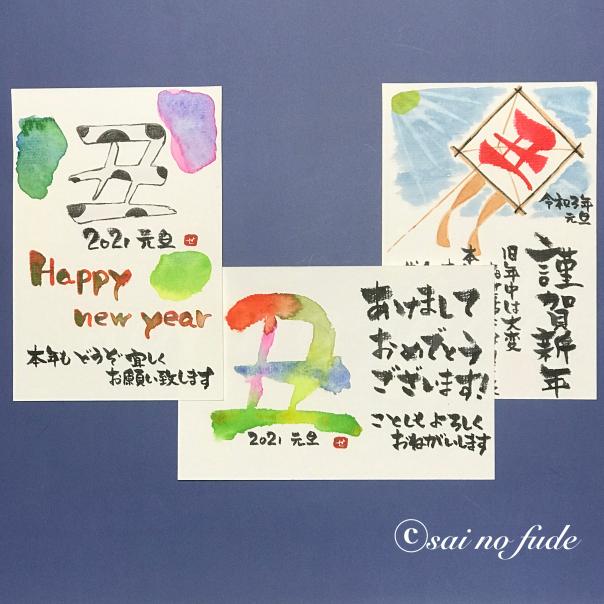 丑
2021 元旦
ぜ
Happy
new year
本年もどうぞ宜しく
お願い致します
丑
令和3年
元旦
謹賀新年
旧年中は大変
本
丑
2021 元旦
ぜ
あけまして
おめでとう
ございます!
ことしもよろしく
おねがいします
©sai no fude